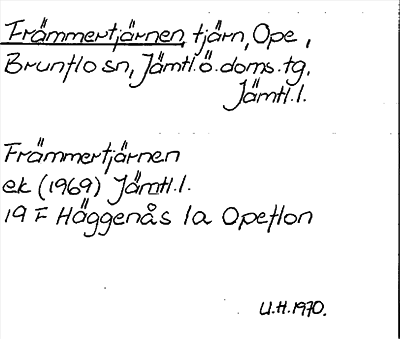 Främmertjärnen, tjärn, Ope,
Brunflo sn, Jämtl.ö.doms.tg.
Jämtl.l.
Främmertjärnen
ek (1969) Jämtl.l.
19 F Häggenås 1a Opeflon
U.H.1970.